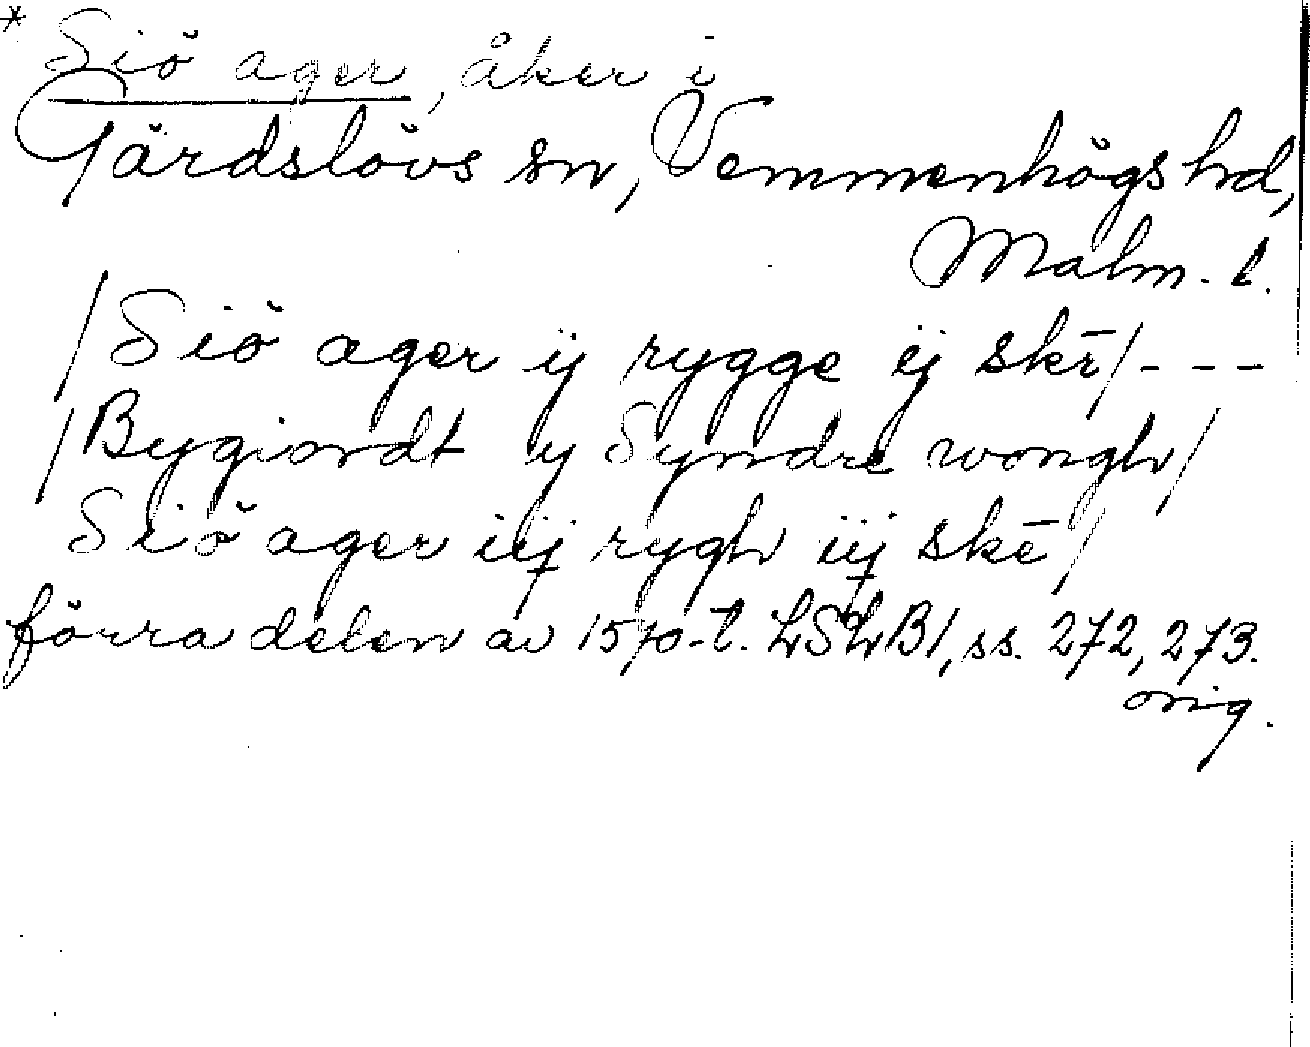 * Siö ager, åker i
Gärdslövs sn, Vemmenhögs hd,
Malm. l.
/Siö ager ij rygge ij skē/ - - -
/Bygiordt ij Syndre wongh/
Siö ager iij rygh iij skē/
förra delen av 1570-t. LSLB1, ss. 272, 273.
orig.